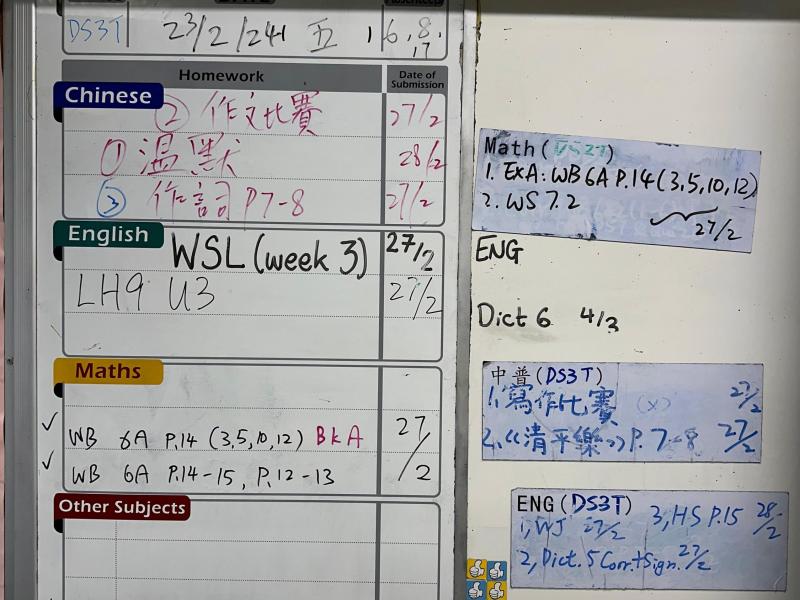 DS3T 23/2/24 五 16,8,17
Homework Date of Submission
Chinese
② 作文比賽 27/2
① 温默 28/2
③ 作言詞 P7-8 27/2
English
WSL (week 3) 27/2
LH9 U3 27/2
Maths
✓ WB 6A P.14 (3,5,10,12) BkA 27/2
✓ WB 6A P.14-15, P.12-13
Other Subjects
Math (DS2T)
1. ExA: WB 6A P.14 (3,5,10,12)
2. WS 7.2
27/2
ENG
Dict 6 4/3
中普 (DS3T)
1. 寫作比賽 (x) 27/2
2. 《清平樂》P.7-8 27/2
ENG (DS3T)
1, WJ 27/2 3, HS P.15 28/2
2, Dict. 5 Corr.+Sign. 27/2